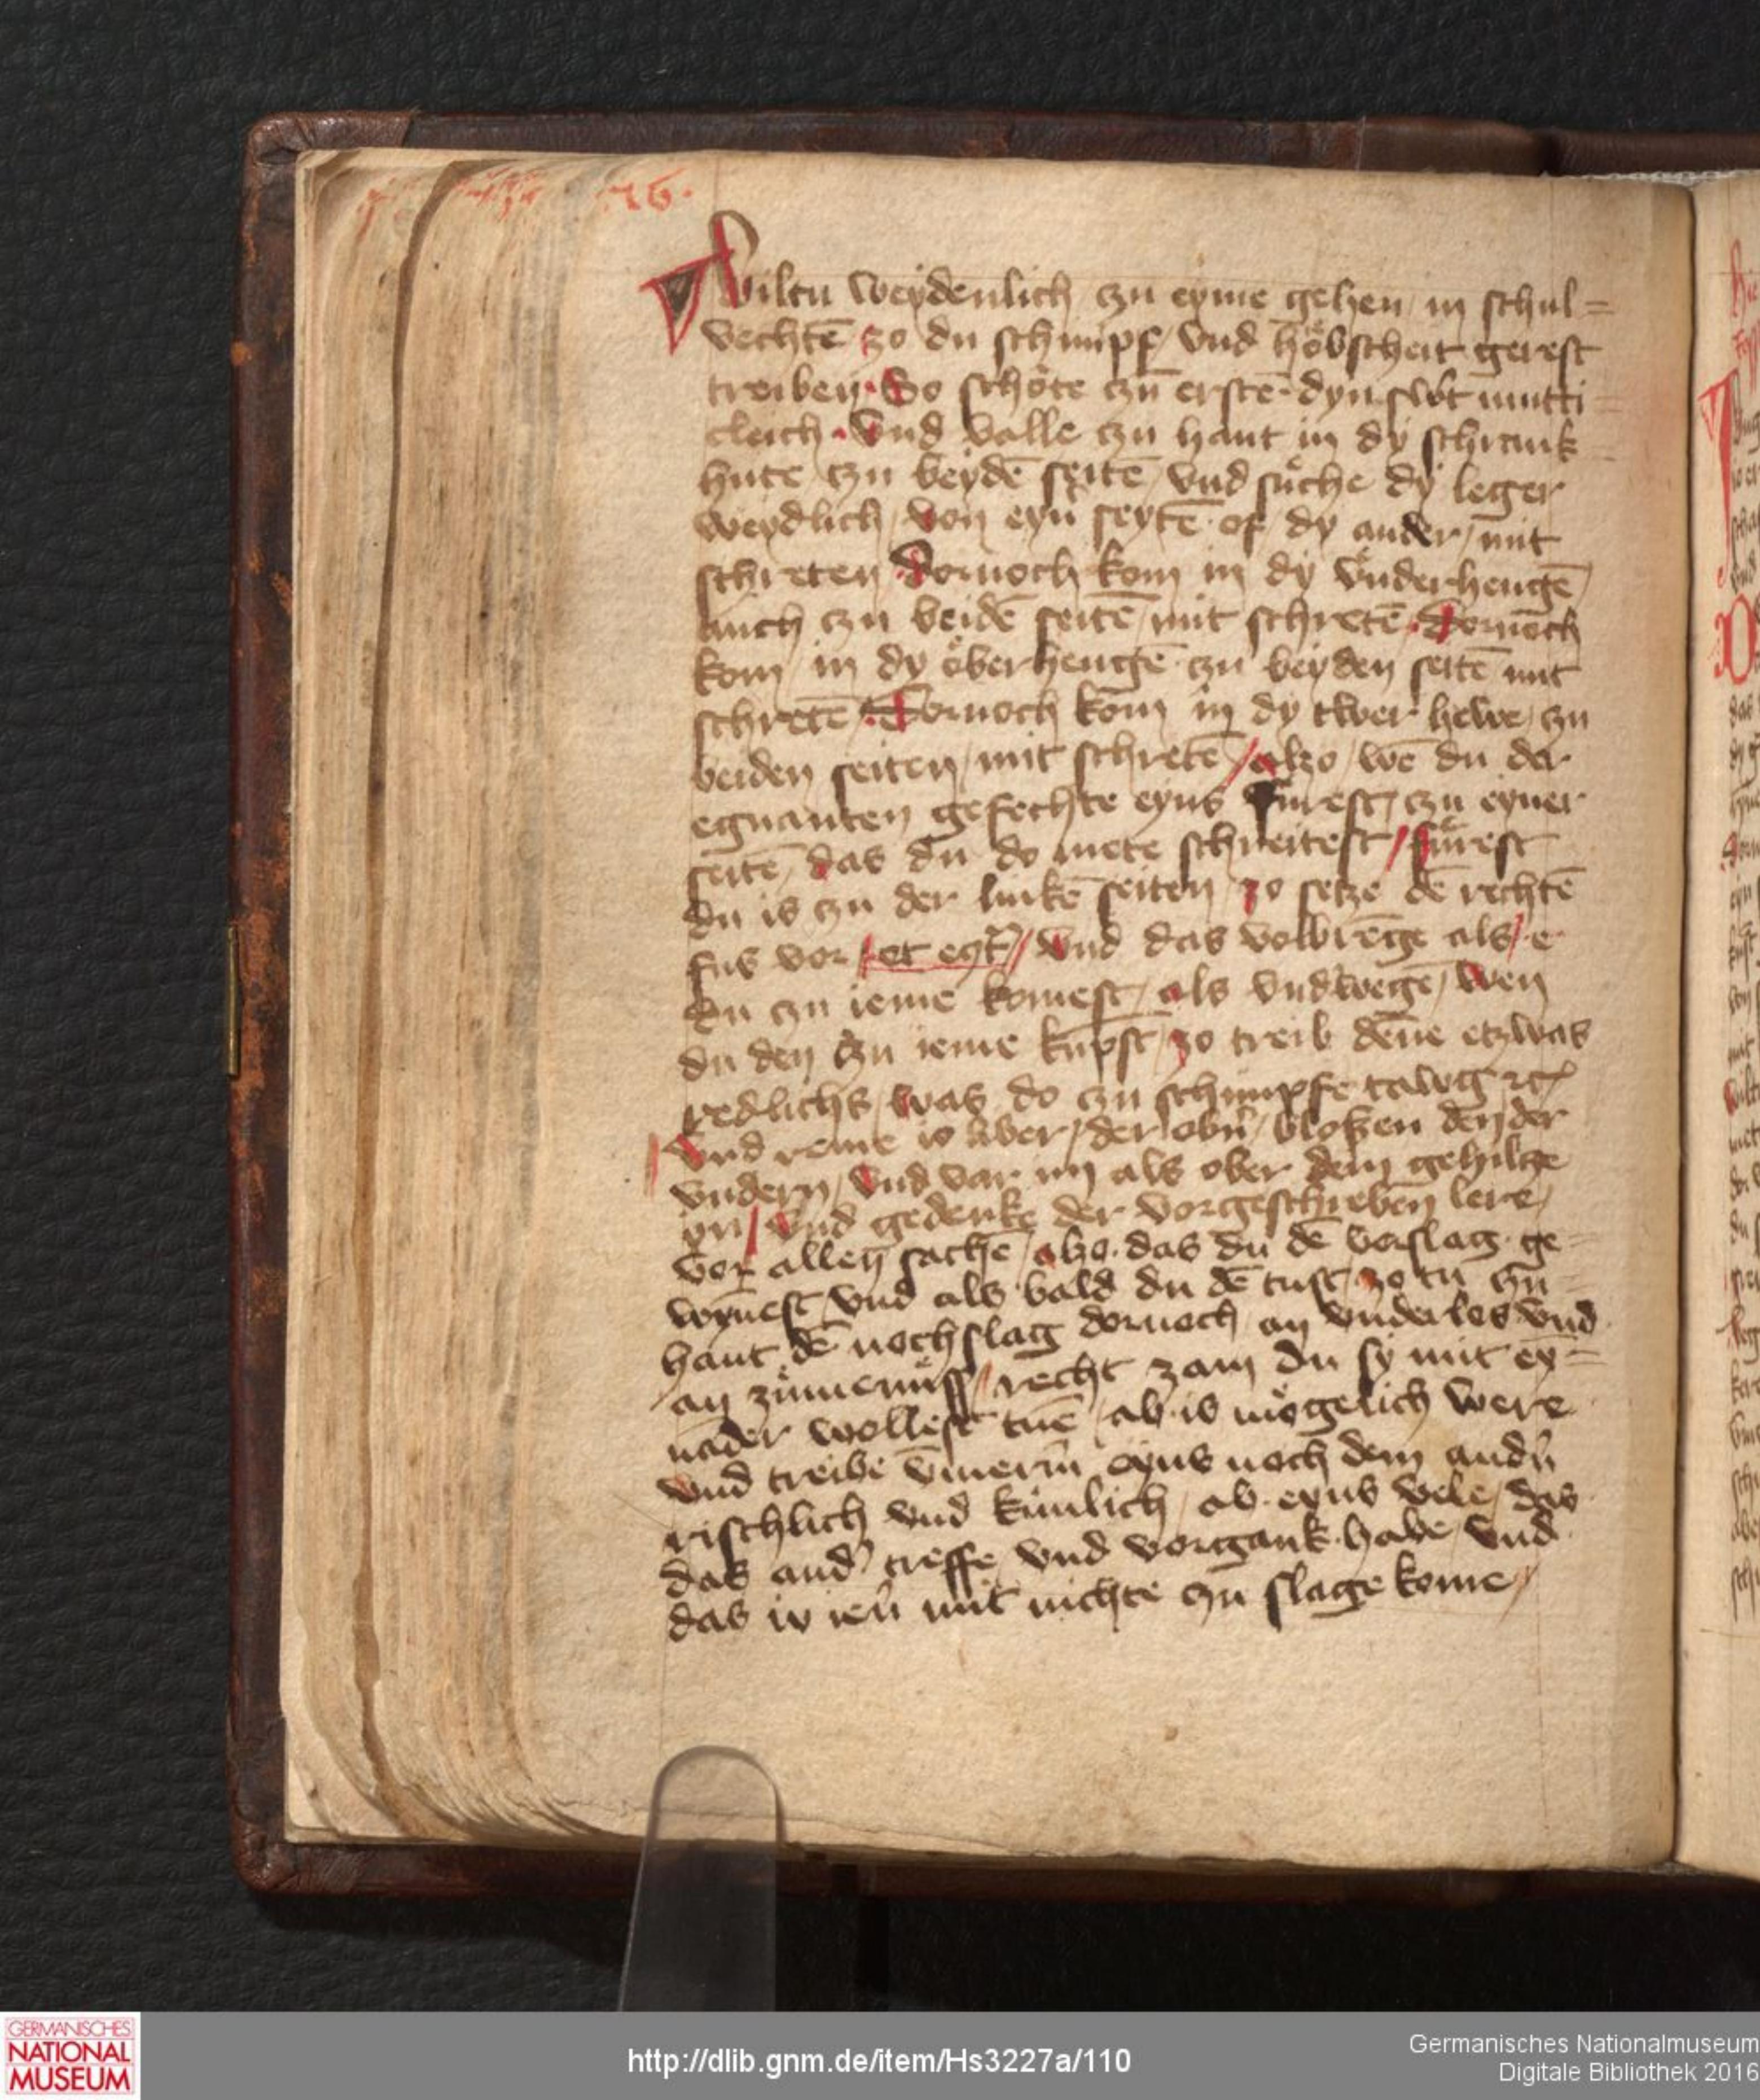 Wiltu weydenlich / czu eyme gehen / in schul=
vechtē zo du schimpf / vnd höbscheit gerest
treiben · So schöte czu erstē · dyn swt mutti=
cleich · Vnd valle czu hant in dy schrank=
hute / czu beydē seitē / vnd sůche dy leger
weydlich / von eyn̄ seytē · of / dy ander / mit
schreten · Dornoch kom in dy vnderhengē /
auch czu beidē seitē / mit schretē · Dornoch
kom / in dy öberhengē · czu beyden seitē mit
schretē / Dornoch kom in dy twer hewe / czu
beiden seiten / mit schretē / alzo / wē du der
egnanten gefechte eyns fürest / czu eyner
seitē / das du do mete schreitest / fürest
du is czu der linkē seiten / zo setze dē rechtē
fus vor / et eqr̄ // Vnd das volbrēge als / e
du czu ieme komest / als vndwegē / wen
du den czu ieme kūpst / zo treib dēne etzwas
redlichs / was do czu schimpfe tawg ꝛc̄
Vnd reme io aber / der obn̄ / blosßen den der
vndern / Vnd var im als ober dem gehiltze
yn / Vnd gedenke der vorgeschreben lere /
vor allen sachē / alzo · das du dē vorslag · ge=
wynest / vnd als bald du dē tust / zo tu czu
hant dē nochslag dornoch / an vnderlos vnd
an zümenüss // recht zam du sy mit ey=
nāder wollest tuē / ab · is mögelich were
Vnd treibe v̄merm̄ eyns noch dem andn̄
rischlich vnd künlich / ab · eyns vele / das
das and' treffe / vnd vorgank · habe / Vnd
das iv ien̄ mit nichte czu slage kome //
http://dlib.gnm.de/item/Hs3227a/110
GERMANISCHES
NATIONAL
MUSEUM
Germanisches Nationalmuseum
Digitale Bibliothek 2016